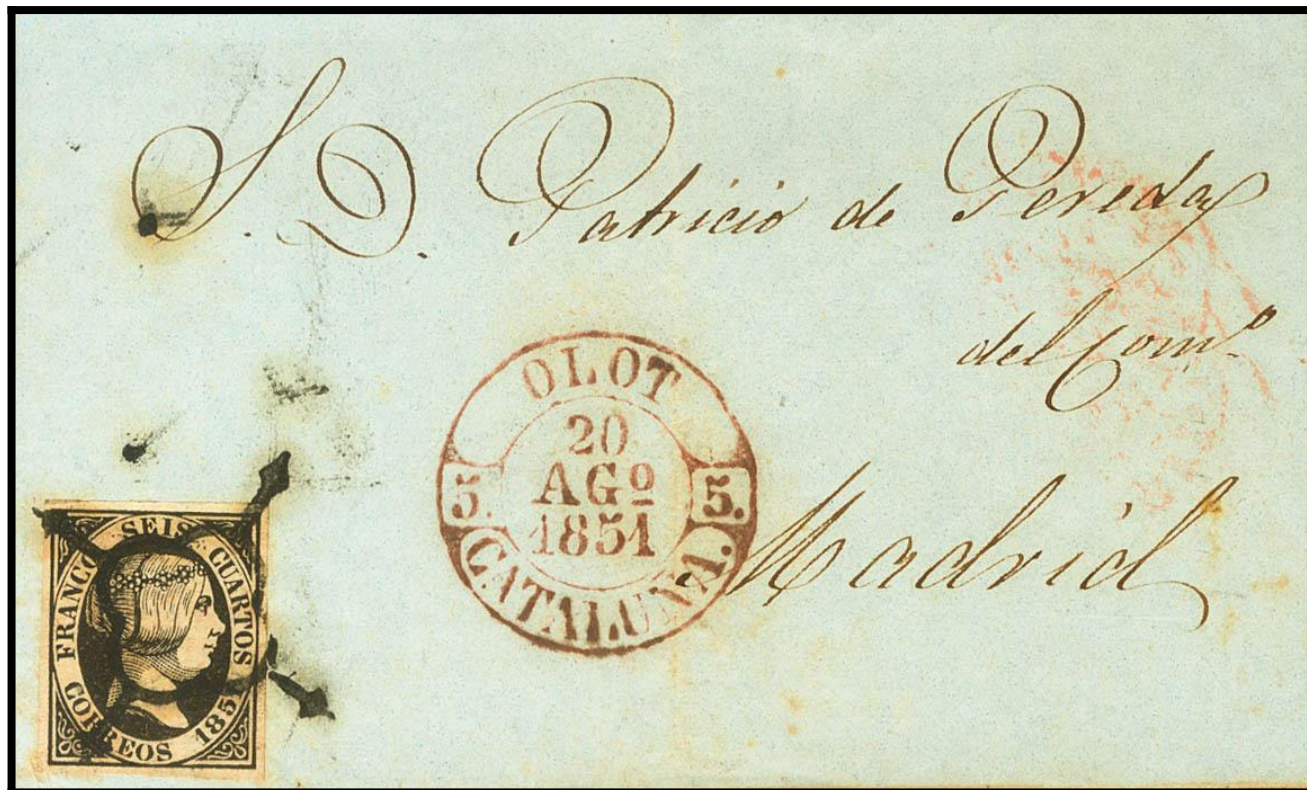 S. D. Patricio de Pereda
del Comº
Madrid
OLOT
20
AGº
1851
5. 5.
CATALUÑA.
FRANCO SEIS CUARTOS
CORREOS 1851